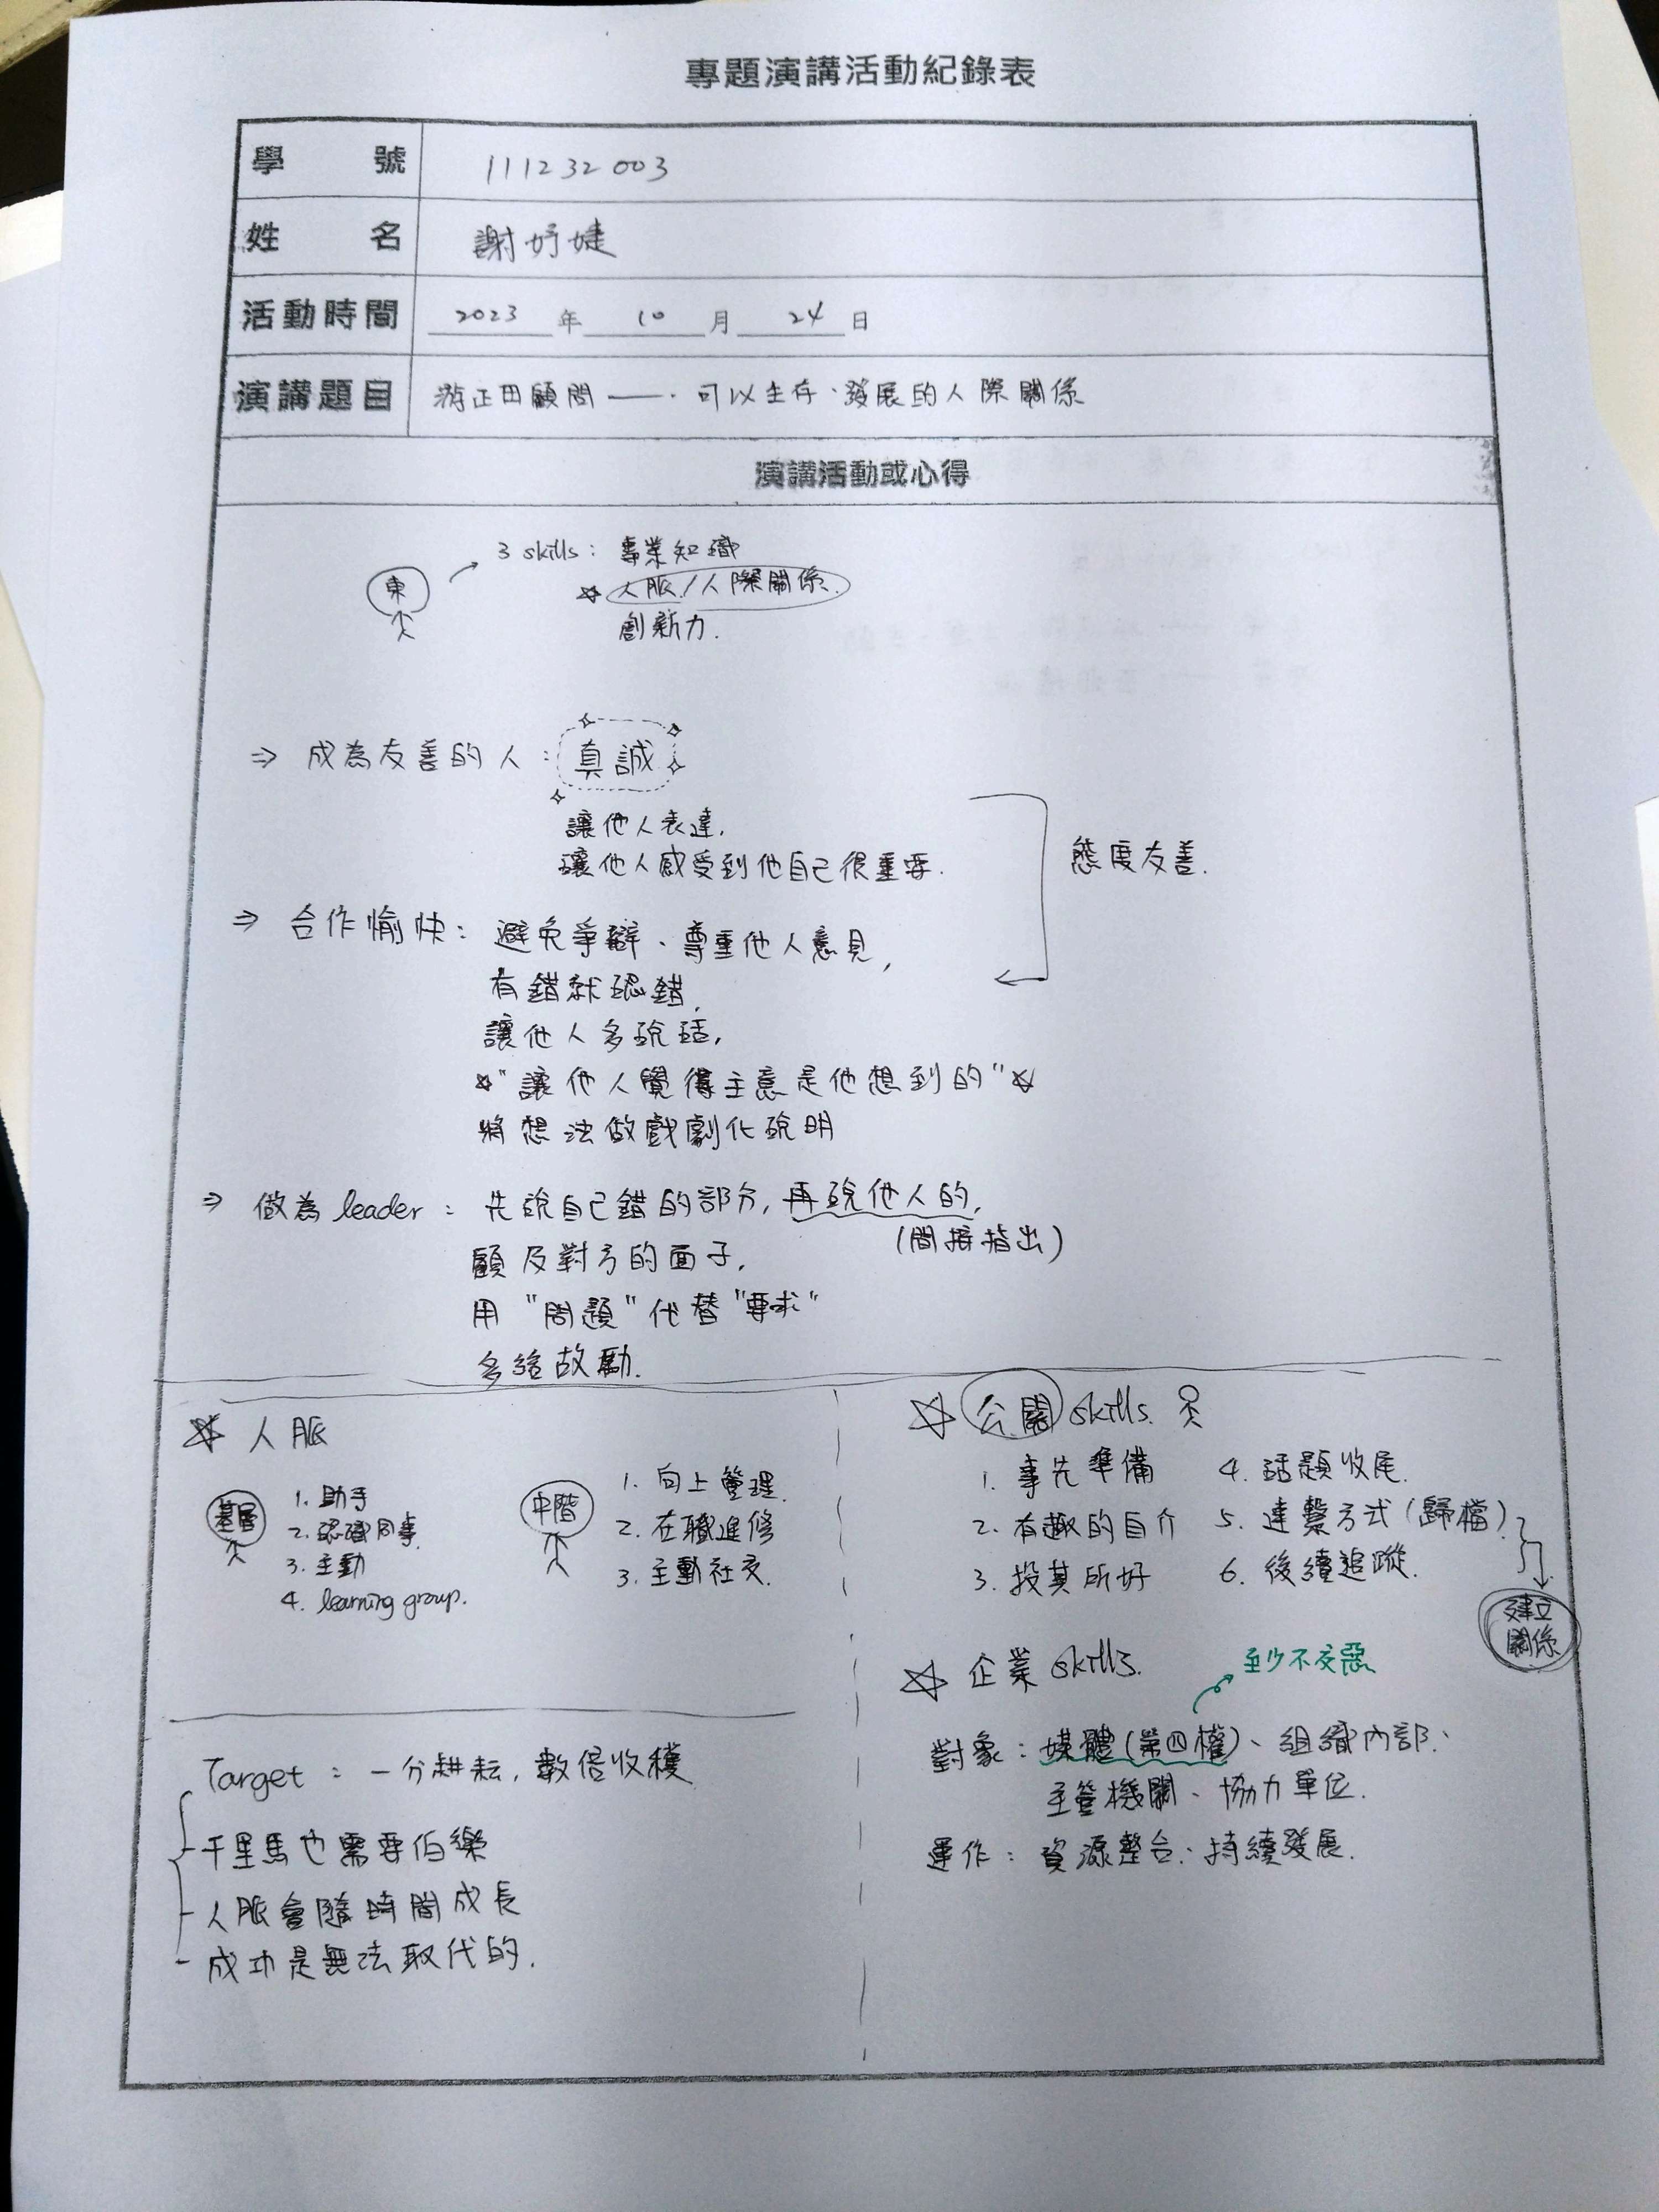 專題演講活動紀錄表
學號 111232003
姓名 謝妤婕
活動時間 2023 年 10 月 24 日
演講題目 游正田顧問 —— 可以生存、發展的人際關係
演講活動或心得
東
3 skills: 專業知識
☆ 人脈/人際關係.
創新力.
⇒ 成為友善的人: 真誠
讓他人表達,
讓他人感受到他自己很重要.
態度友善.
⇒ 合作愉快: 避免爭辯、尊重他人意見,
有錯就認錯,
讓他人多說話,
☆"讓他人覺得主意是他想到的"☆
將想法做戲劇化說明
⇒ 做為 leader: 先說自己錯的部分, 再說他人的,
(間接指出)
顧及對方的面子,
用 "問題" 代替 "要求"
多給故勵.
☆ 人脈
基層
1. 助手
2. 認識同事.
3. 主動
4. learning group.
中階
1. 向上管理.
2. 在職進修
3. 主動社交.
Target: 一分耕耘, 數倍收穫
- 千里馬也需要伯樂
- 人脈會隨時間成長
- 成功是無法取代的.
☆ 公關 skills.
1. 事先準備
2. 有趣的自介
3. 投其所好
4. 話題收尾.
5. 連繫方式 (歸檔)
6. 後續追蹤.
建立
關係
☆ 企業 skills.
至少不交惡
對象: 媒體(第四權)、組織內部、
主管機關、協力單位.
運作: 資源整合、持續發展.